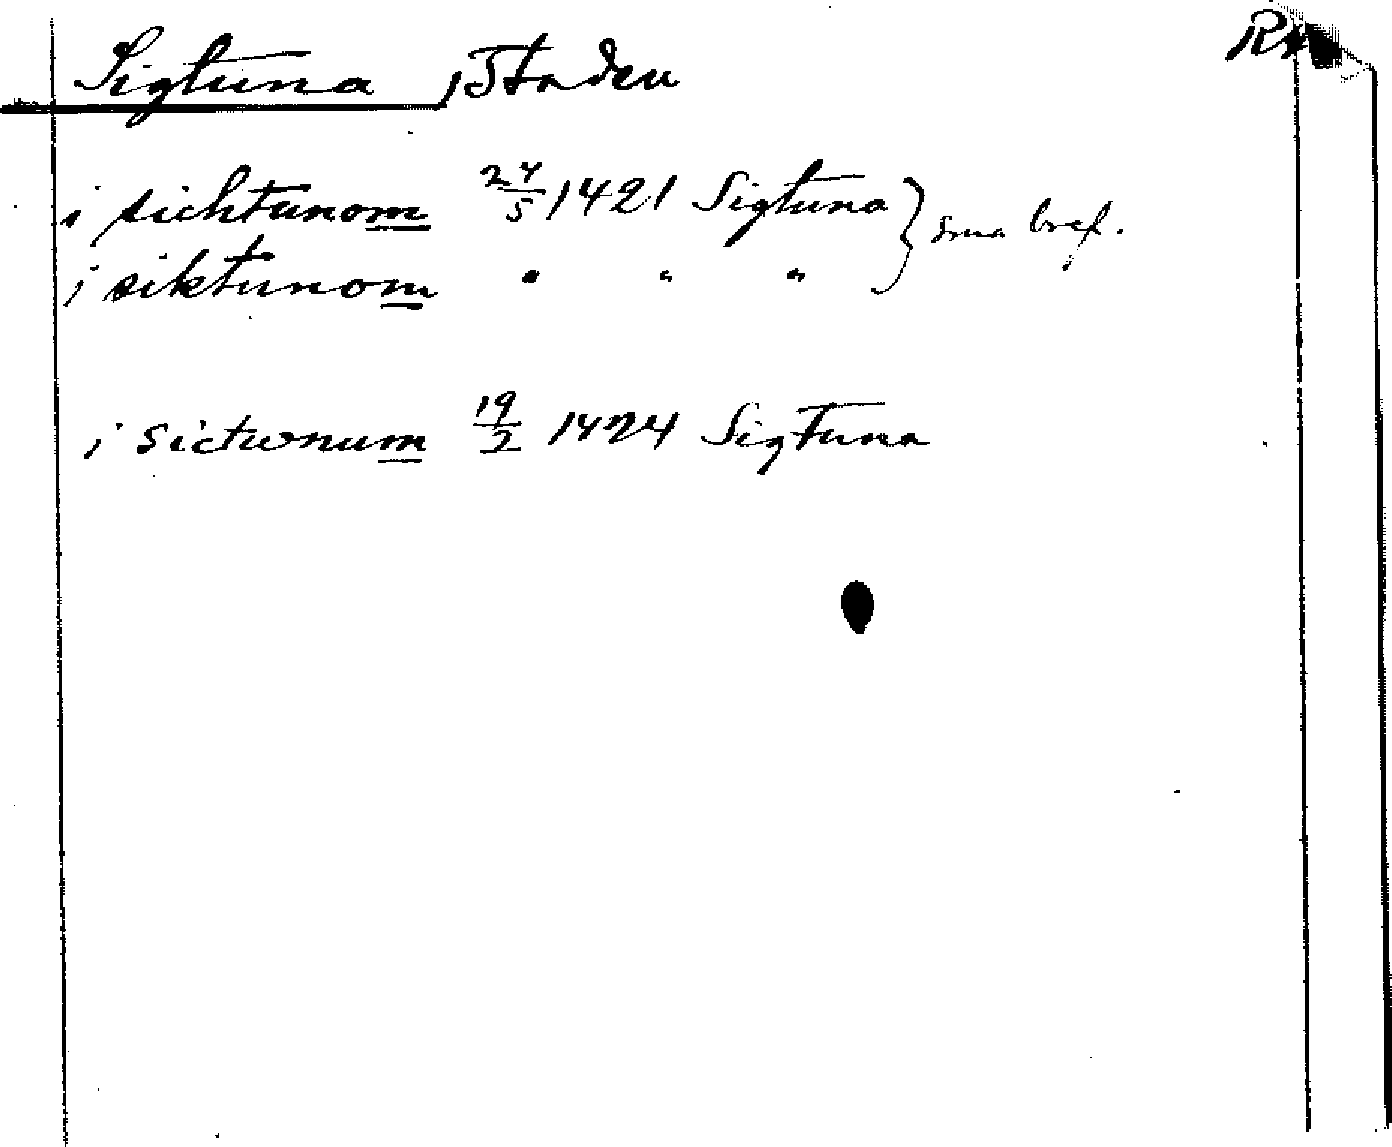 Sigtuna, Staden
i sichtunom 24/5 1421 Sigtuna } sma bref.
i siktunom " " "
i sictwnum 19/2 1424 Sigtuna